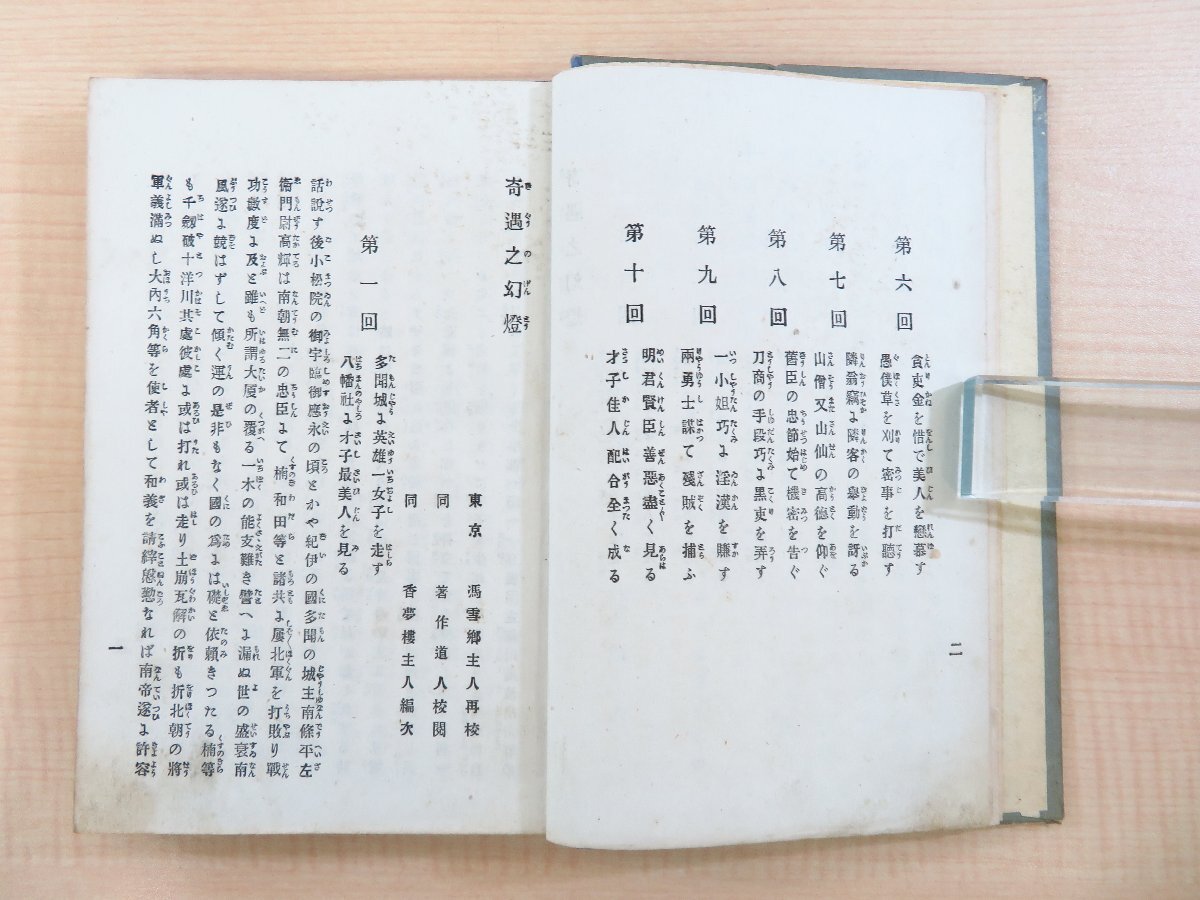 第六回
貪吏金を惜で美人を戀慕す
愚僕草を刈て密事を打聽す
第七回
隣翁竊よ隣客の擧動を訝る
山僧又山仙の高德を仰ぐ
第八回
舊臣の忠節始て機密を告ぐ
刀商の手段巧よ黒吏を弄す
第九回
一小妲巧よ淫漢を賺す
兩勇士謀て殘賊を捕ふ
第十回
明君賢臣善惡盡く見る
才子佳人配合全く成る
二
奇遇之幻燈
東京 馮雪鄕主人再校
同 著作道人校閲
同 香夢樓主人編次
第一回
多聞城よ英雄一女子を走す
八幡社よ才子最美人を見る
話説す後小松院の御宇臨御應永の頃とかや紀伊の國多聞の城主南條平左
衞門尉高輝は南朝無二の忠臣よて楠和田等と諸共よ屢北軍を打敗り戰
功數度よ及と雖も所謂大厦の覆る一木の能支難き譬へよ漏ぬ世の盛衰南
風遂よ競はずして傾く運の是非もなく國の爲よは礎と依頼きつたる楠等
も千劔破十洋川其處彼處よ或は打れ或は走り土崩瓦解の折も折北朝の將
軍義滿ぬし大內六角等を使者として和義を請繂慇懃なれば南帝遂よ許容
一